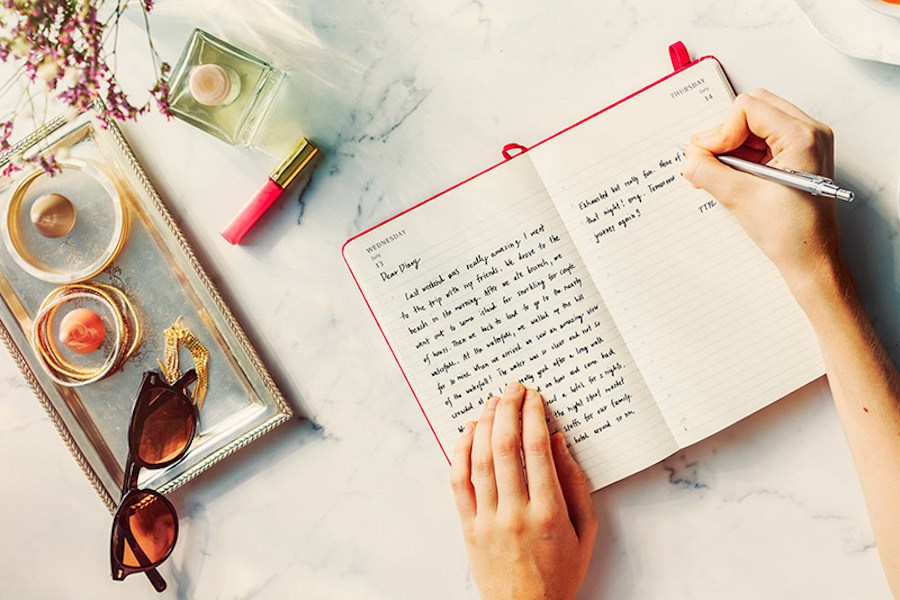 WEDNESDAY
July
13
Dear Diary
Last weekend was really amazing I went
to the trip with my friends. We drove to the
beach in the morning. After we ate brunch, we
went out to some island for snorkling for couple
of hours. Then we back to land to go to the nearby
waterfall. At the waterfall, we walked up the hill
for 30 mins. When we arrived we saw an amazing view
of the waterfall! The water was so clear and not so
crowded really good after a long walk
an hour and came back
a hotel for 2 nights.
the night street market
stuffs for our family.
hotel around 10 pm.
THURSDAY
July
14
Exhausted but really fun. None of
that night! omg. Tomorrow
journey again!!
TTYL